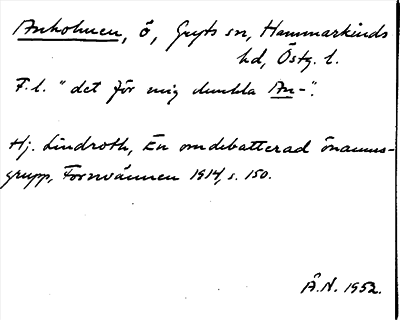 Ankolmen, ö, Gryts sn, Hammarkinds
hd, Östg. l.
F.l. "det för mig dunkla An-".
Hj. Lindroth, En omdebatterad önamns-
grupp, Fornvännen 1914, s. 150.
Å.N. 1952.